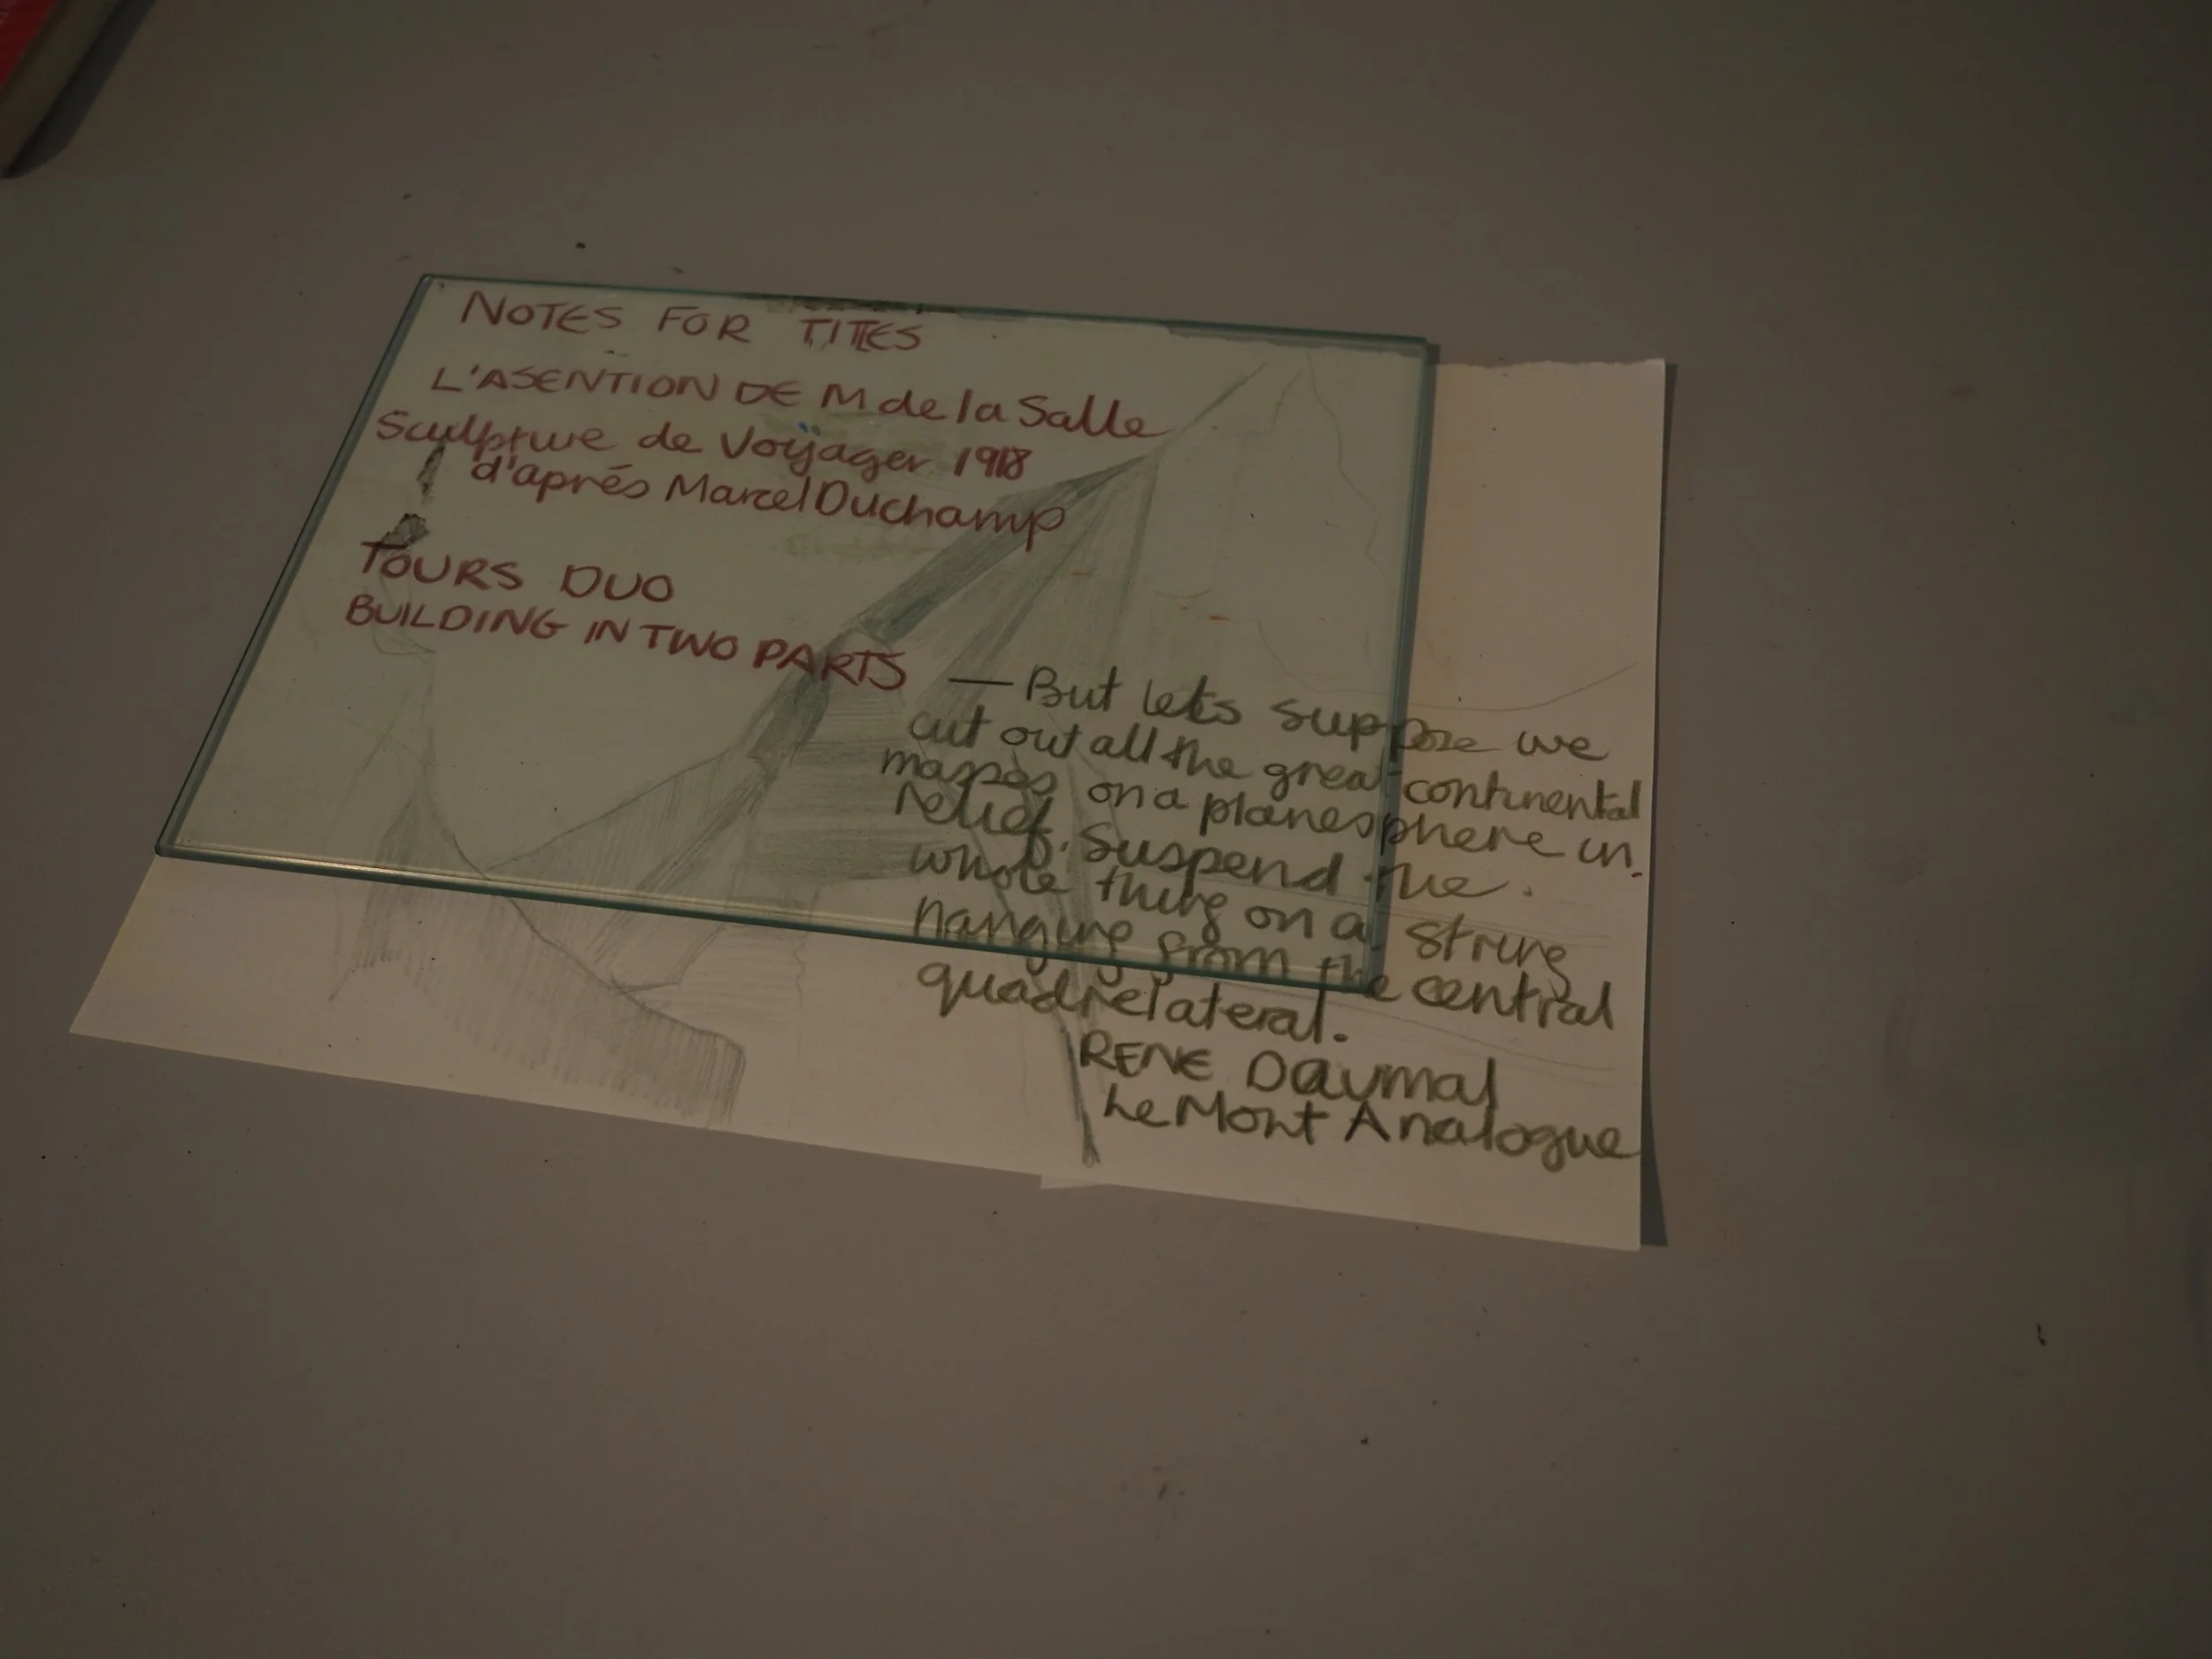 NOTES FOR TITLES
L'ASENTION DE M de la Salle
Sculpture de Voÿager 1918
d'aprés Marcel Duchamp
TOURS DUO
BUILDING IN TWO PARTS
— But lets suppose we
cut out all the great continental
masses on a planesphere in
relief. Suspend the
whole thing on a string
hanging from the central
quadrelateral.
RENE Daumal
Le Mont Analogue